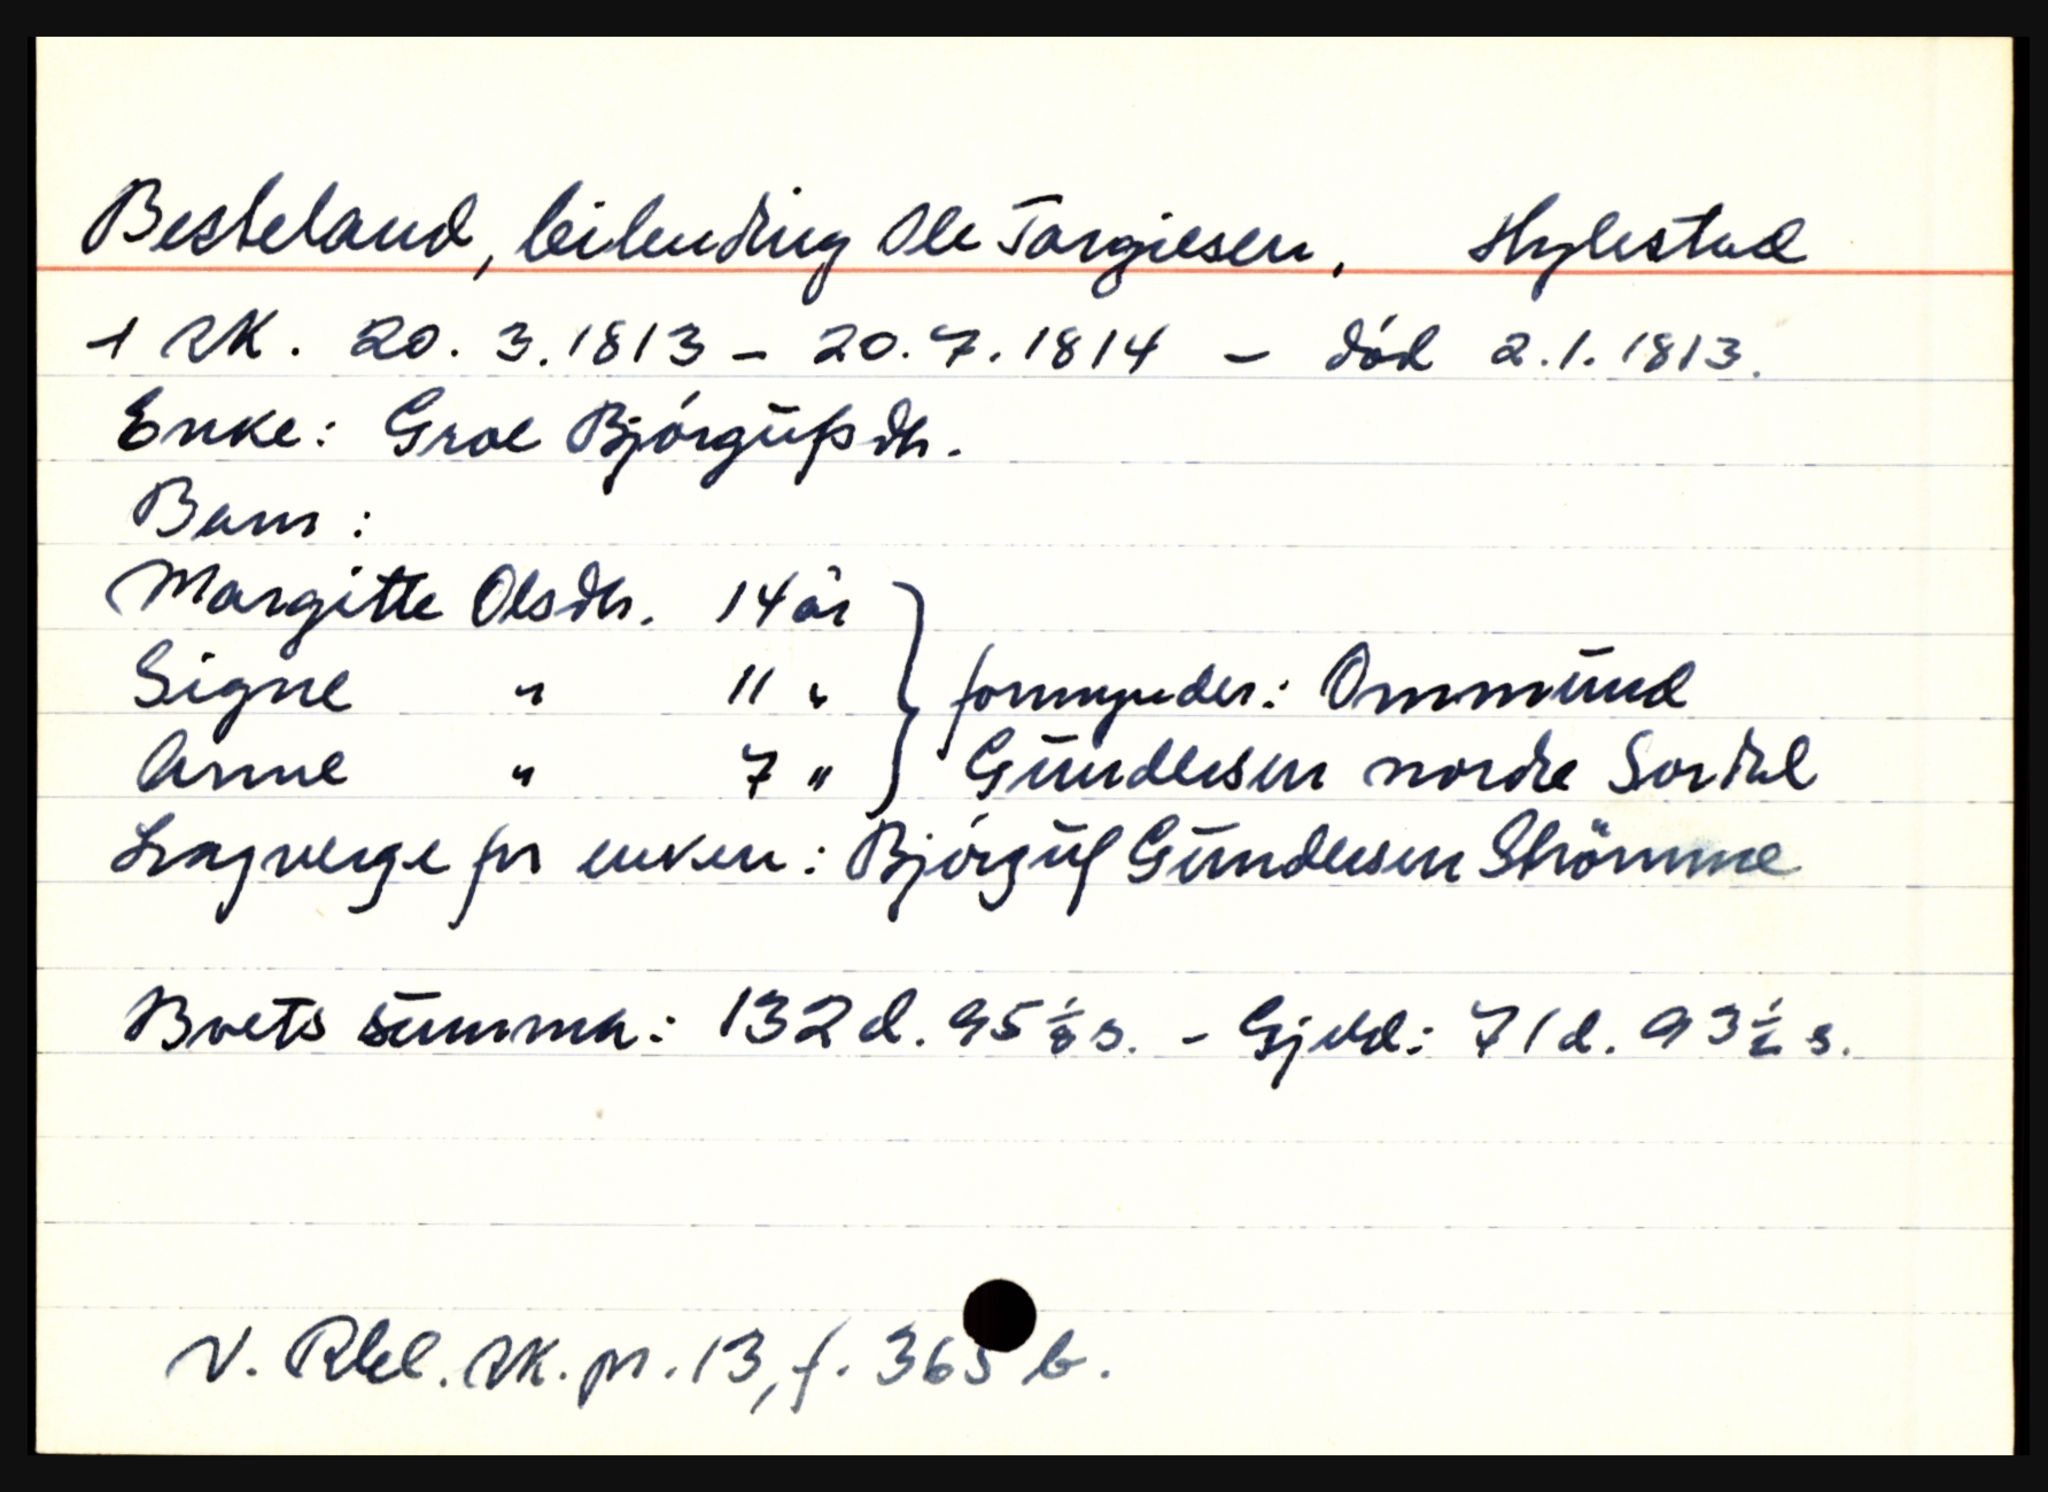 Besteland, leilending Ole Torgiesen, Hylestad
1 SK. 20. 3. 1813 - 20. 7. 1814 - död 2. 1. 1813.
Enke: Groe Bjórgufsdtr.
Barn:
Margitte Olsdtr. 14 år
Signe " 11 " formynder: Ommund
Anne " 7 " Gundersen nordre
Lagverge for enken: Bjórguf Gundersen Strömme
Boets summa: 132 d. 95 ½ s. - Gjeld: 71 d. 93 ½ s.
V. Rbl. SK. pr. 13, f. 365 b.